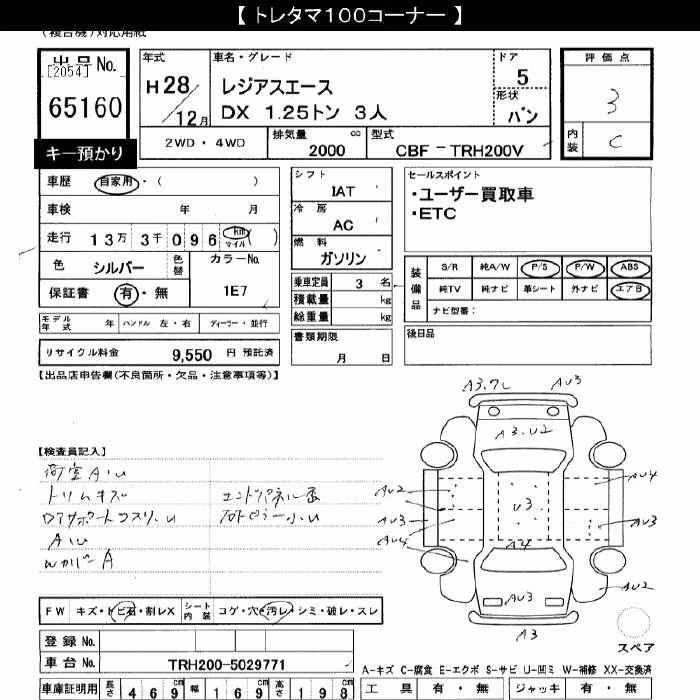 【 トレタマ100コーナー 】
出品No.
[2054]
65160
キー預かり
年式
H28/12月
車名・グレード
レジアスエース
DX 1.25トン 3人
ドア
5
形状
バン
評価点
3
内装
C
2WD・4WD
排気量
cc
2000
型式
CBF-TRH200V
車歴 自家用・( )
車検 年 月
走行 13万3千096 km マイル ( )
色 シルバー 色替
カラーNo.
1E7
保証書 有・無
モデル年式 年 ハンドル 左・右 ディーラー・並行
リサイクル料金 9,550 円 預託済
シフト
IAT
冷房
AC
燃料
ガソリン
乗車定員 3 名
積載量 kg
総重量 kg
書類期限
月 日
セールスポイント
・ユーザー買取車
・ETC
装備品
S/R 純A/W P/S P/W ABS
純TV 純ナビ 革シート 外ナビ エアB
ナビ型番:
後日品
【出品店申告欄(不良箇所・欠品・注意事項等)】
【検査員記入】
荷室AU
トリムキズ
AU
A3 AU3
A3.U2
AU2
AU3
AU4
U3
A4
AU4
AU3
AU3
AU2
A3
スペア
FW キズ・トビ石・割レX シート内装 コゲ・穴・汚レ・シミ・破レ・スレ
登録No.
車台No. TRH200-5029771
車庫証明用 長さ 469cm 幅 169cm 高さ 198cm
A-キズ C-腐食 E-エクボ S-サビ U-凹ミ W-補修 XX-交換済
工具 有・無 ジャッキ 有・無